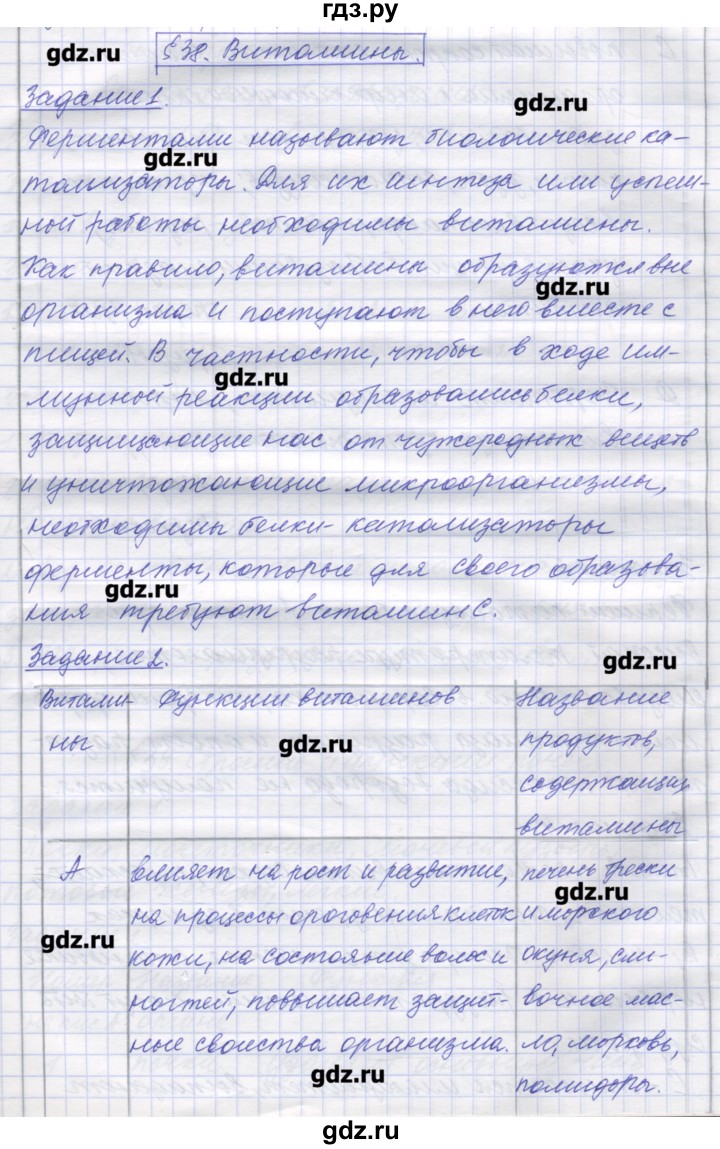 гдз.ру
§ 38. Витамины.
gdz.ru
Задание 1.
gdz.ru
Ферментами называют биологические ка-
gdz.ru
тализаторы. Для их синтеза или успеш-
ной работы необходимы витамины.
Как правило, витамины образуются вне
gdz.ru
организма и поступают в него вместе с
пищей. В частности, чтобы в ходе им-
gdz.ru
мунной реакции образовались белки,
защищающие нас от чужеродных веществ
и уничтожающие микроорганизмы,
необходимы белки-катализаторы
ферменты, которые для своего образова-
gdz.ru
ния требуют витамин С.
Задание 2.
gdz.ru
Витами- Функции витаминов Название
ны продуктов,
gdz.ru
содержащих
витамины
А влияет на рост и развитие, печень трески
gdz.ru
на процессы ороговения клеток и морского
gdz.ru
кожи, на состояние волос и окуня, сли-
ногтей, повышает защит- вочное мас-
ные свойства организма. ло, морковь,
gdz.ru
помидоры.
gdz.ru